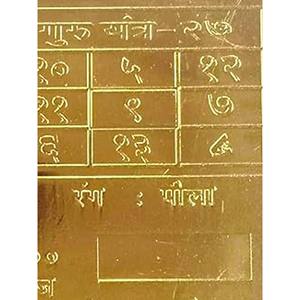 गुरु यंत्र - २७
१० ५ १२
११ ९ ७
६ १३ ८
रंग : पीला